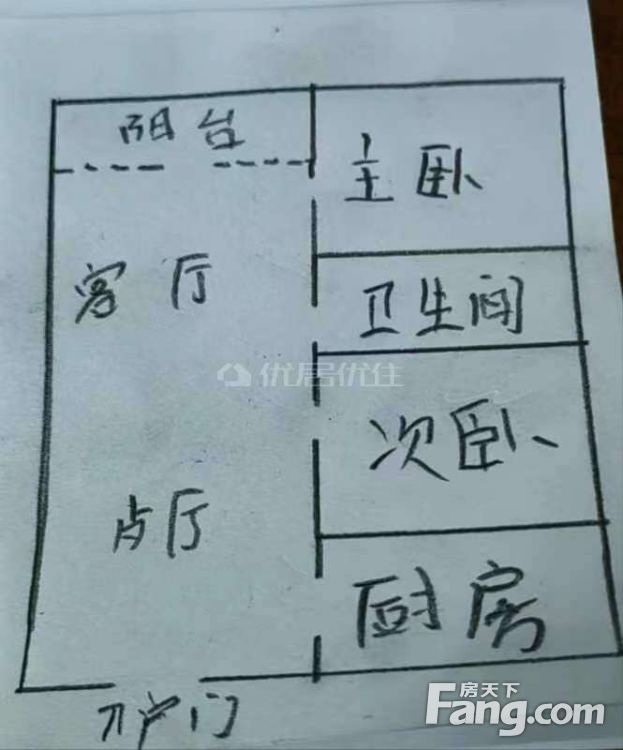 阳台
主卧
客厅
卫生间
优居优住
次卧
占厅
厨房
入户门
房天下
Fang.com